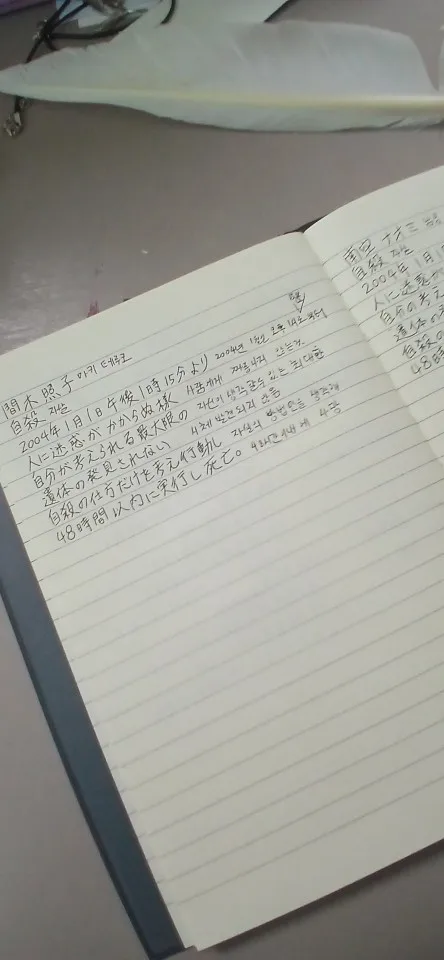 間木照子 마키 테루코
自殺 자살
2004年1月1日午後1時15分より 2004년 1월 1일 오후 1시 15분
人に迷惑がかからぬ様 사람에게 폐를 끼치지 않는
自分が考えられる最大限の 자신이 생각할 수 있는 최대한
遺体の発見されない 시체 발견되지 않을
自殺の仕方だけを考え行動し 자살의 방법만을 생각해
48時間以内に実行し死亡。 48시간 내에
南空ナオミ
自殺 자살
2004年1月1
人に迷惑か
自分の考え
遺体の
自殺の
48時